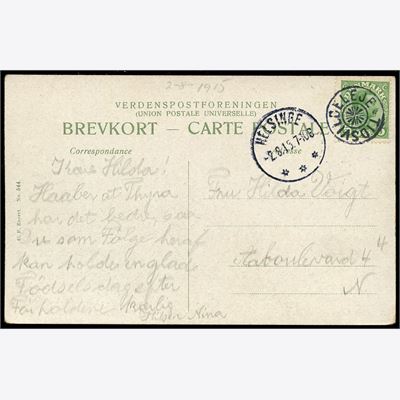 2-8-1915
VERDENSPOSTFORENINGEN
(UNION POSTALE UNIVERSELLE)
BREVKORT – CARTE POSTALE
Correspondance
HELSINGE
-2.8.15. 7-10 F
TIBSVILDELEJE
Kære Hilda!
Haaber at Thyra
har det bedre, saa
Du som Følge heraf
kan holde en glad
Fødselsdag efter
Forholdene
Kærlig
Hilsen Nina
Fru Hilda Voigt
Aaboulevard 4 4
N.